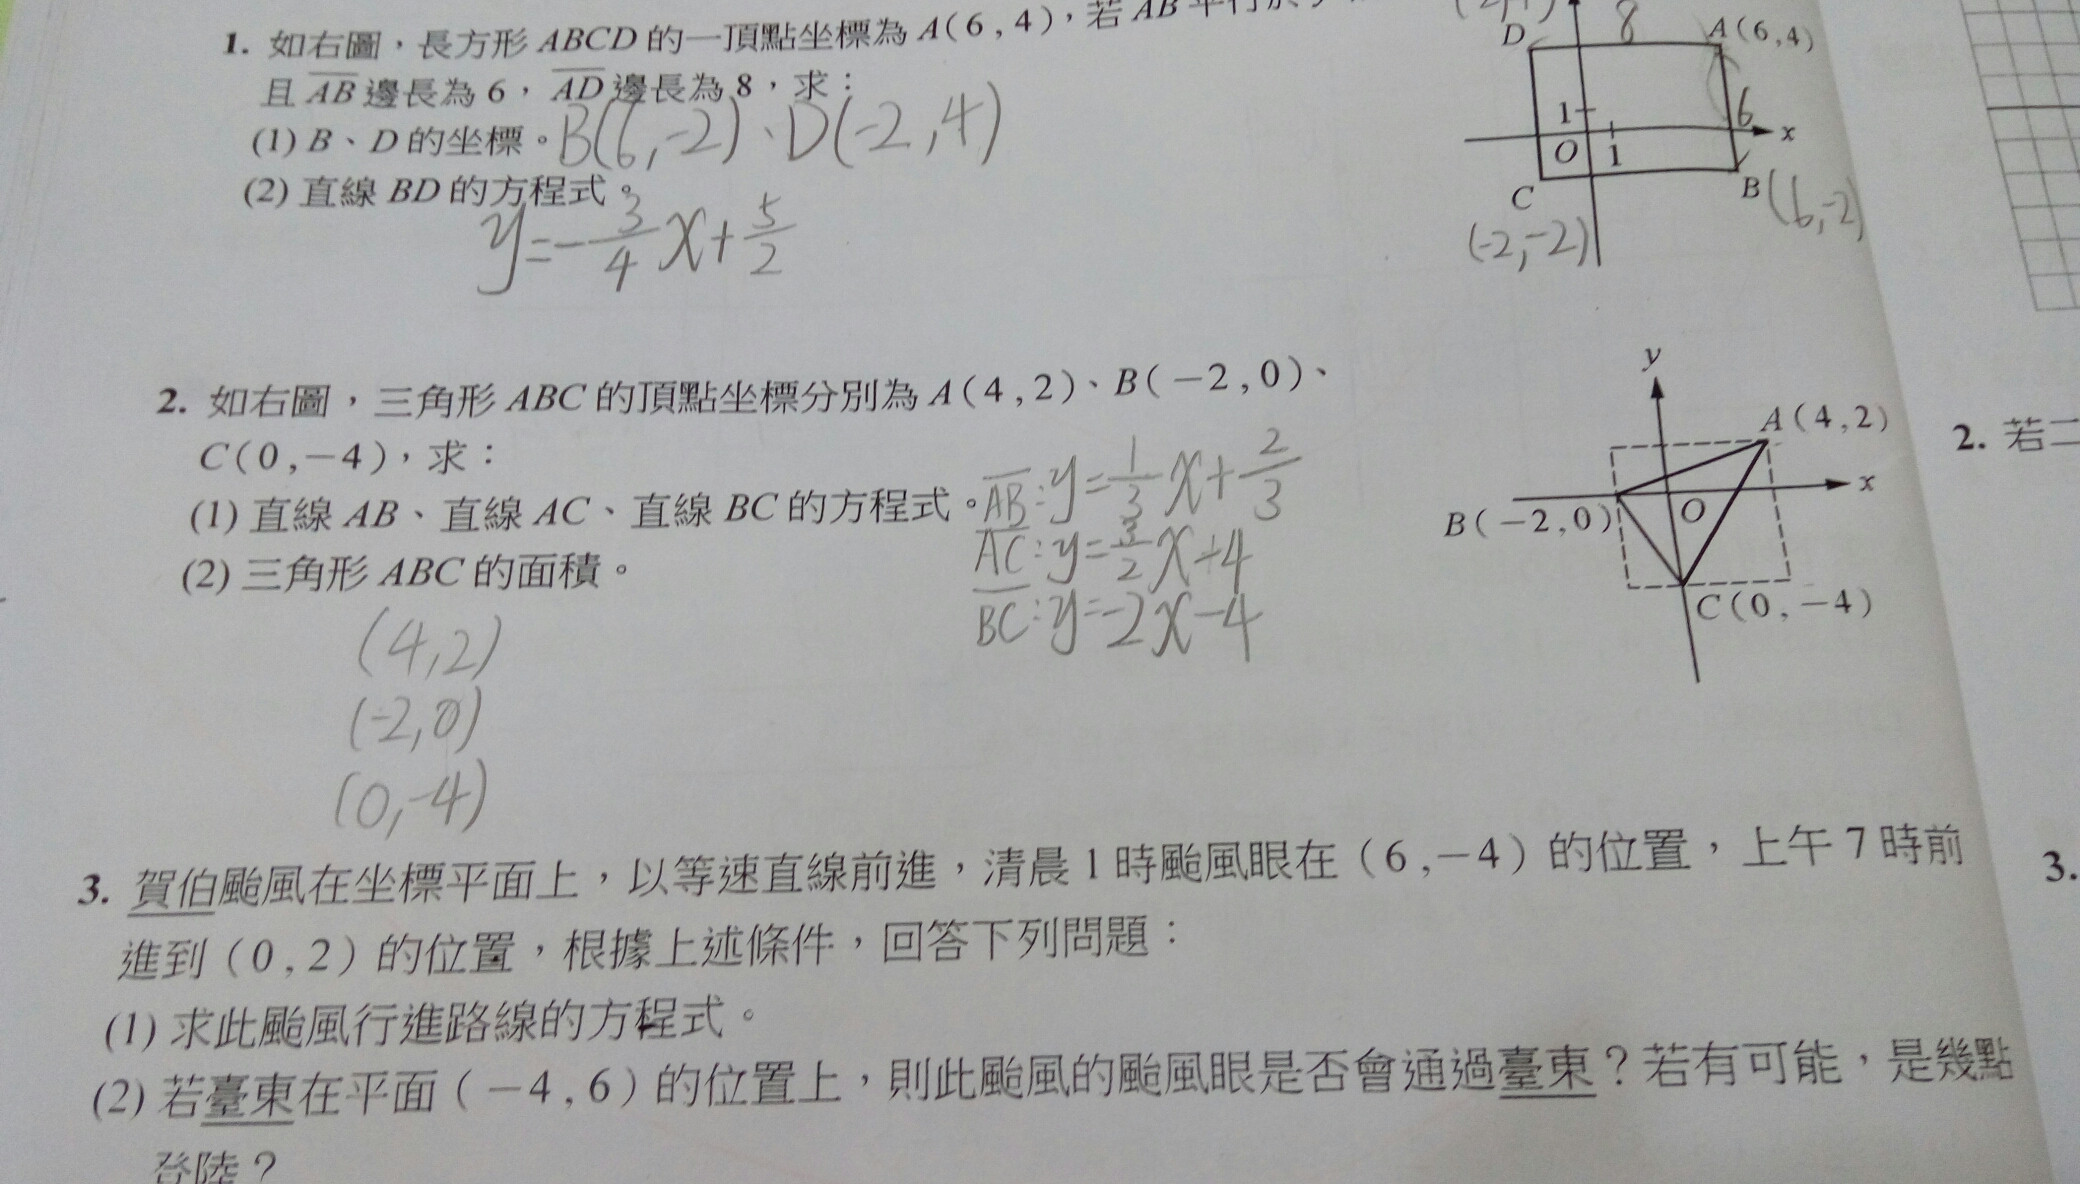 1. 如右圖，長方形 ABCD 的一頂點坐標為 A(6,4)，若 AB 平行於
且 AB 邊長為 6，AD 邊長為 8，求：
(1) B、D 的坐標。B(6,-2)、D(-2,4)
(2) 直線 BD 的方程式。
y=-3/4x+5/2
D
8
A(6,4)
1
6
x
O
1
C
B(6,-2)
(-2,-2)
2. 如右圖，三角形 ABC 的頂點坐標分別為 A(4,2)、B(-2,0)、
C(0,-4)，求：
(1) 直線 AB、直線 AC、直線 BC 的方程式。
(2) 三角形 ABC 的面積。
AB:y=1/3x+2/3
AC:y=3/2x+4
BC:y=-2x-4
(4,2)
(-2,0)
(0,-4)
y
A(4,2)
x
B(-2,0)
O
C(0,-4)
3. 賀伯颱風在坐標平面上，以等速直線前進，清晨 1 時颱風眼在(6,-4)的位置，上午 7 時前
進到(0,2)的位置，根據上述條件，回答下列問題：
(1) 求此颱風行進路線的方程式。
(2) 若臺東在平面(-4,6)的位置上，則此颱風的颱風眼是否會通過臺東？若有可能，是幾點
登陸？
2. 若二
3.